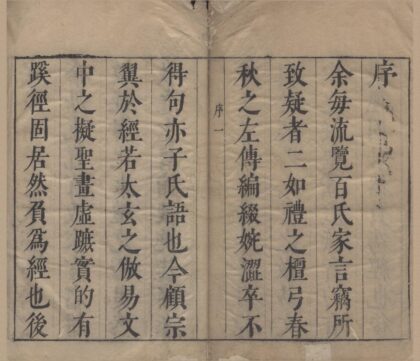 序
余每流覽百氏家言竊所
致疑者二如禮之檀弓春
秋之左傳編綴婉澀卒不
序一
得句亦子氏語也今顧宗
與於經若太玄之倣易文
中之擬聖畫虛蹠實的有
蹊徑固居然頁為經也後